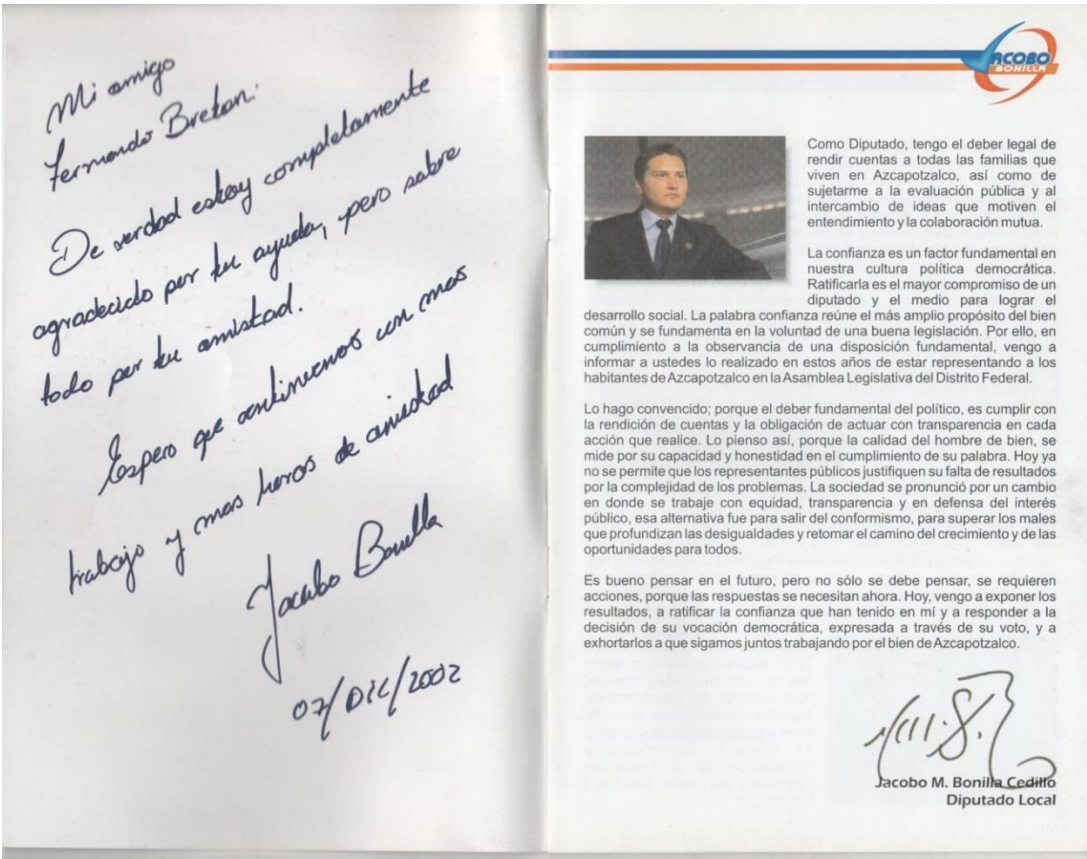 Mi amigo
Fernando Breton:
De verdad estoy completamente
agradecido por tu ayuda, pero sobre
todo por tu amistad.
Espero que continuemos con mas
trabajo y mas horas de amistad
Jacobo Bonilla
07/DIC/2002
JACOBO
BONILLA
Como Diputado, tengo el deber legal de
rendir cuentas a todas las familias que
viven en Azcapotzalco, así como de
sujetarme a la evaluación pública y al
intercambio de ideas que motiven el
entendimiento y la colaboración mutua.
La confianza es un factor fundamental en
nuestra cultura política democrática.
Ratificarla es el mayor compromiso de un
diputado y el medio para lograr el
desarrollo social. La palabra confianza reúne el más amplio propósito del bien
común y se fundamenta en la voluntad de una buena legislación. Por ello, en
cumplimiento a la observancia de una disposición fundamental, vengo a
informar a ustedes lo realizado en estos años de estar representando a los
habitantes de Azcapotzalco en la Asamblea Legislativa del Distrito Federal.
Lo hago convencido; porque el deber fundamental del político, es cumplir con
la rendición de cuentas y la obligación de actuar con transparencia en cada
acción que realice. Lo pienso así, porque la calidad del hombre de bien, se
mide por su capacidad y honestidad en el cumplimiento de su palabra. Hoy ya
no se permite que los representantes públicos justifiquen su falta de resultados
por la complejidad de los problemas. La sociedad se pronunció por un cambio
en donde se trabaje con equidad, transparencia y en defensa del interés
público, esa alternativa fue para salir del conformismo, para superar los males
que profundizan las desigualdades y retomar el camino del crecimiento y de las
oportunidades para todos.
Es bueno pensar en el futuro, pero no sólo se debe pensar, se requieren
acciones, porque las respuestas se necesitan ahora. Hoy, vengo a exponer los
resultados, a ratificar la confianza que han tenido en mí y a responder a la
decisión de su vocación democrática, expresada a través de su voto, y a
exhortarlos a que sigamos juntos trabajando por el bien de Azcapotzalco.
Jacobo M. Bonilla Cedillo
Diputado Local